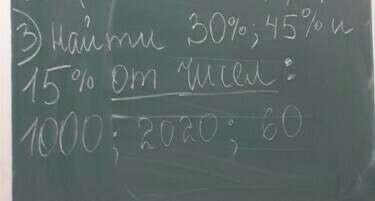 3) найти 30%; 45% и
15% от чисел:
1000; 2020; 60